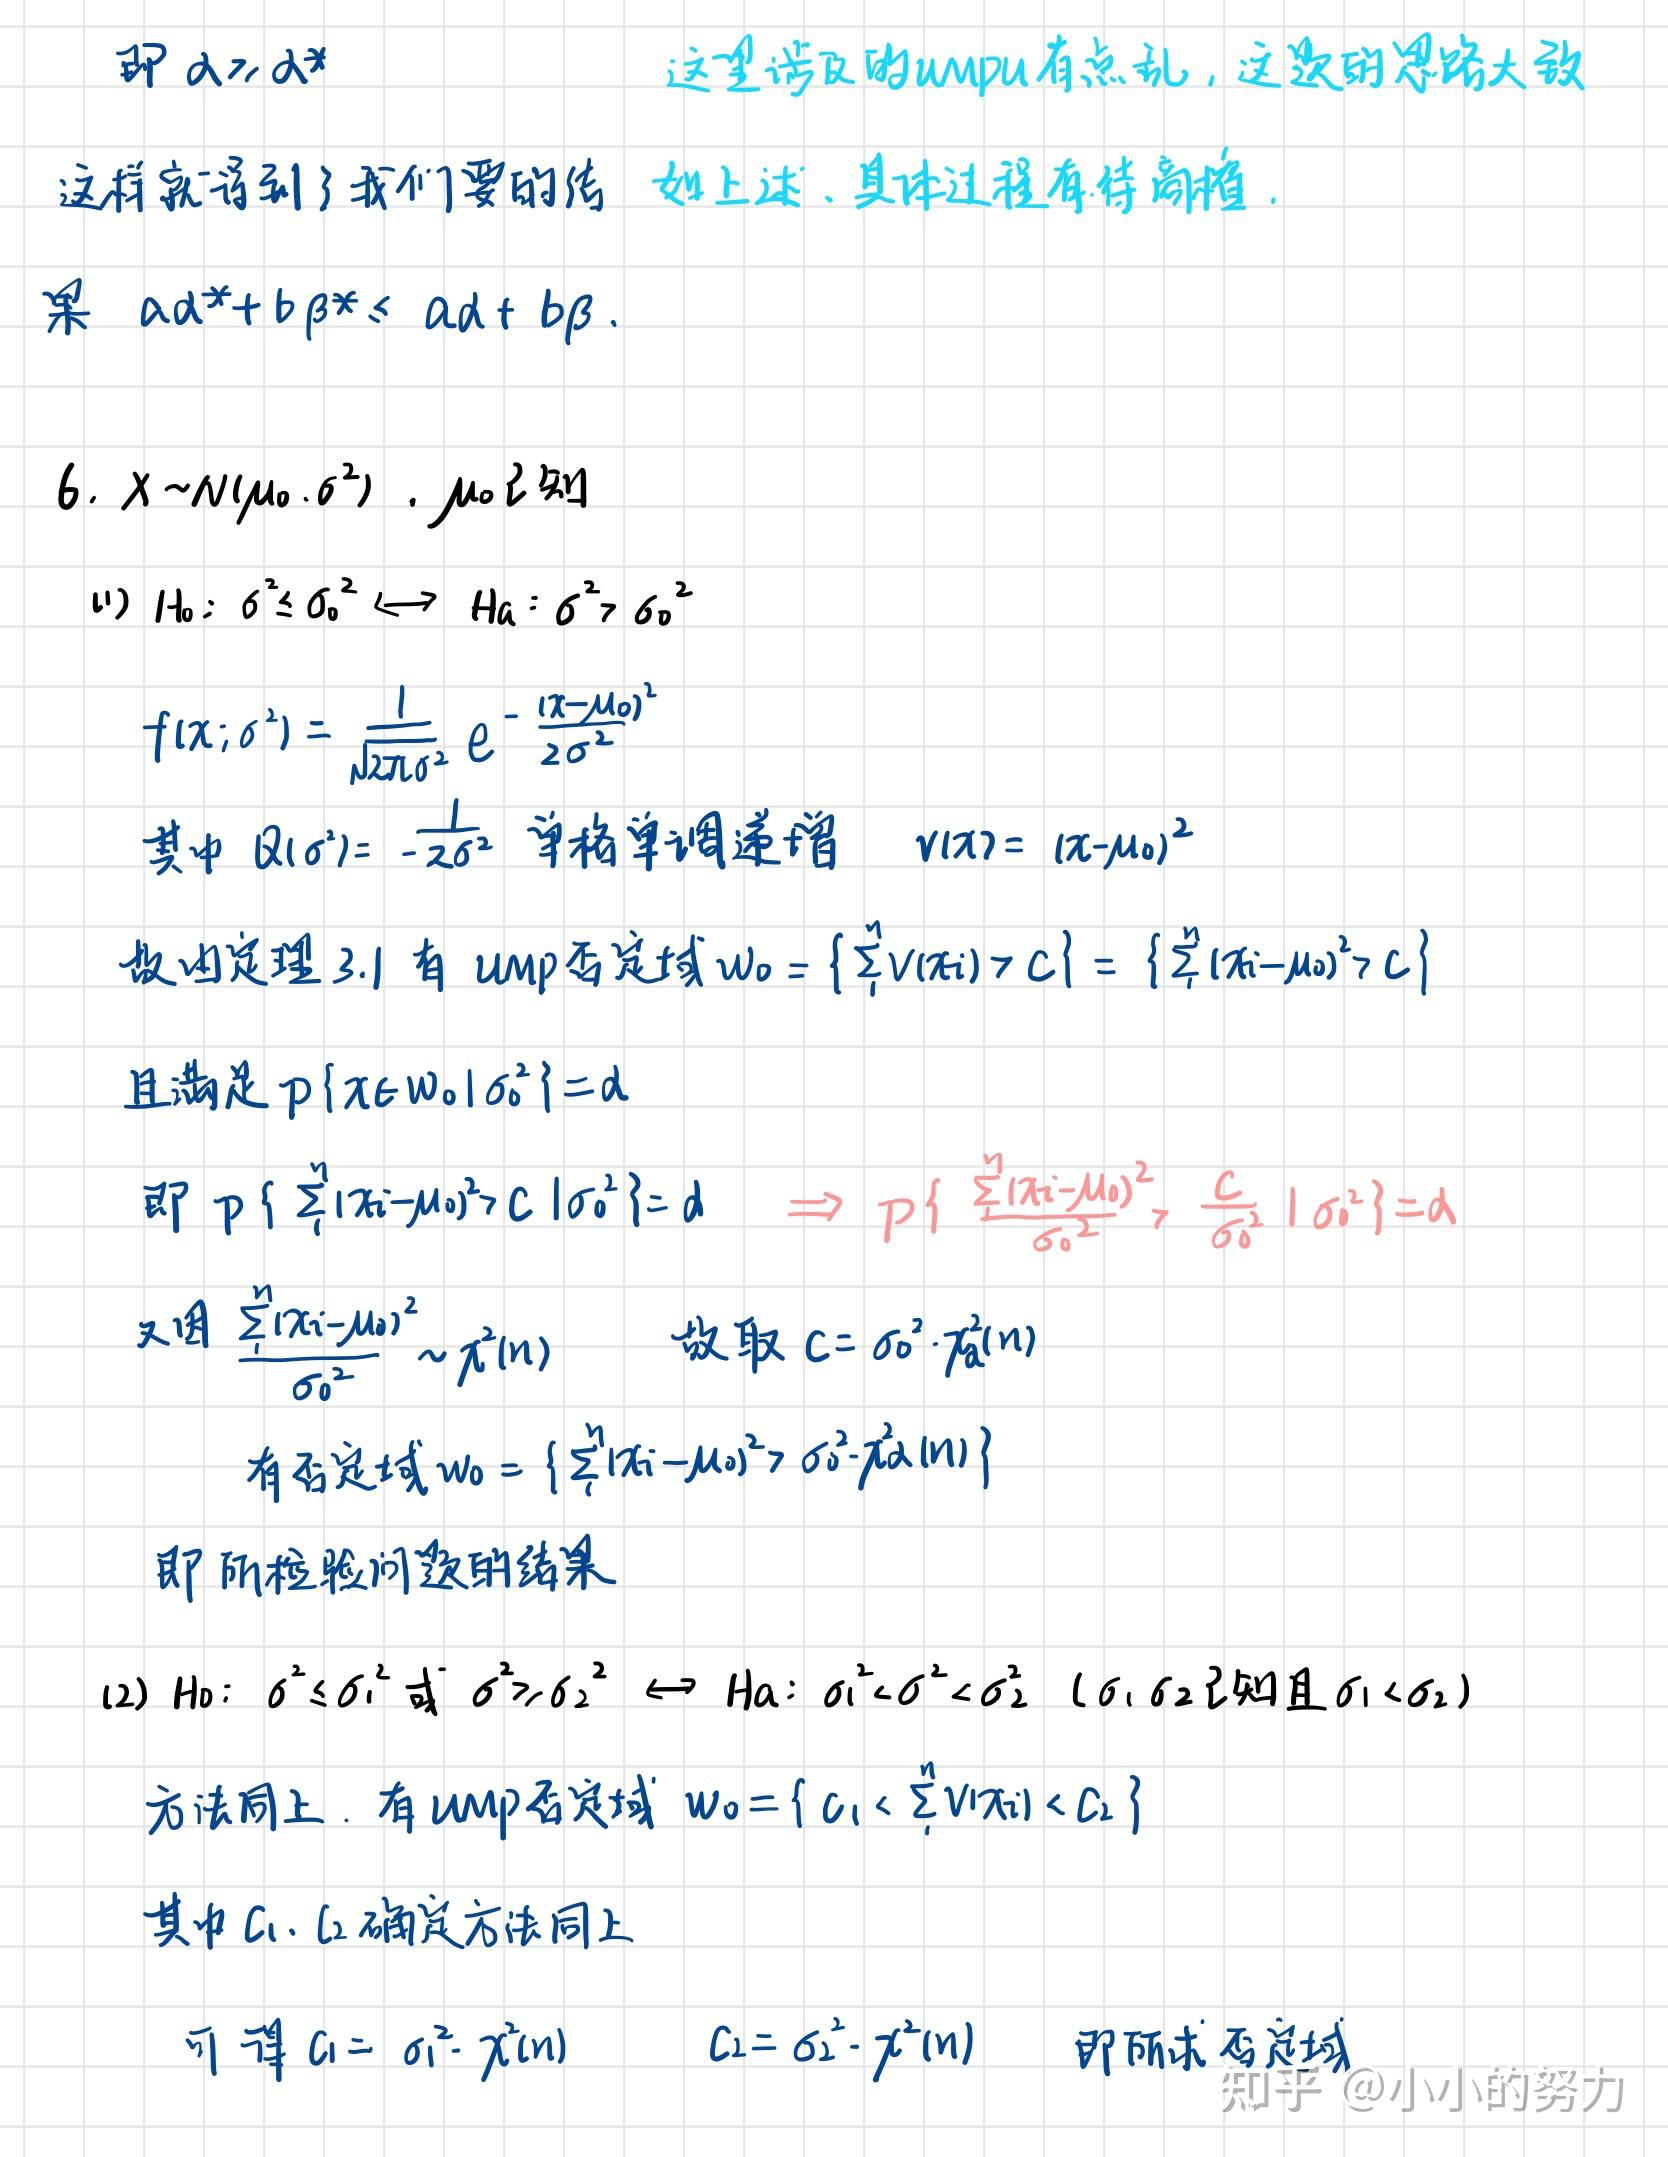 即 α≥α*
这里涉及的umpu有点乱，这题的思路大致
这样就得到了我们要的结
如上述、具体过程有待商榷.
果 aα*+bβ*≤ aα+bβ.
6. X~N(μ₀.σ²) . μ₀已知
(1) H₀: σ²≤σ₀² ⟷ Ha: σ²>σ₀²
f(x;σ²) = 1/√(2πσ²) e^(-(x-μ₀)²/(2σ²))
其中 Q(σ²)= -1/(2σ²) 单格单调递增 V(x)= (x-μ₀)²
故由定理3.1 有 ump否定域 W₀ = {∑₁ⁿV(xᵢ) > C} = {∑₁ⁿ(xᵢ-μ₀)²>C}
且满足 P{x∈W₀|σ₀²}=α
即 P{∑₁ⁿ(xᵢ-μ₀)²>C|σ₀²}=α ⟹ P{∑₁ⁿ(xᵢ-μ₀)²/σ₀² > C/σ₀² |σ₀²}=α
又因 ∑₁ⁿ(xᵢ-μ₀)²/σ₀² ~ χ²(n) 故取 C= σ₀²·χ²α(n)
有否定域 W₀ = {∑₁ⁿ(xᵢ-μ₀)²> σ₀²·χ²α(n)}
即所检验问题的结果
(2) H₀: σ²≤σ₁² 或 σ²≥σ₂² ⟷ Ha: σ₁²<σ²<σ₂² (σ₁ σ₂已知且σ₁<σ₂)
方法同上. 有ump否定域 W₀={C₁<∑₁ⁿV(xᵢ)<C₂}
其中C₁、C₂确定方法同上
可得 C₁= σ₁²·χ²(n) C₂= σ₂²·χ²(n) 即所求否定域
知乎 @小小的努力